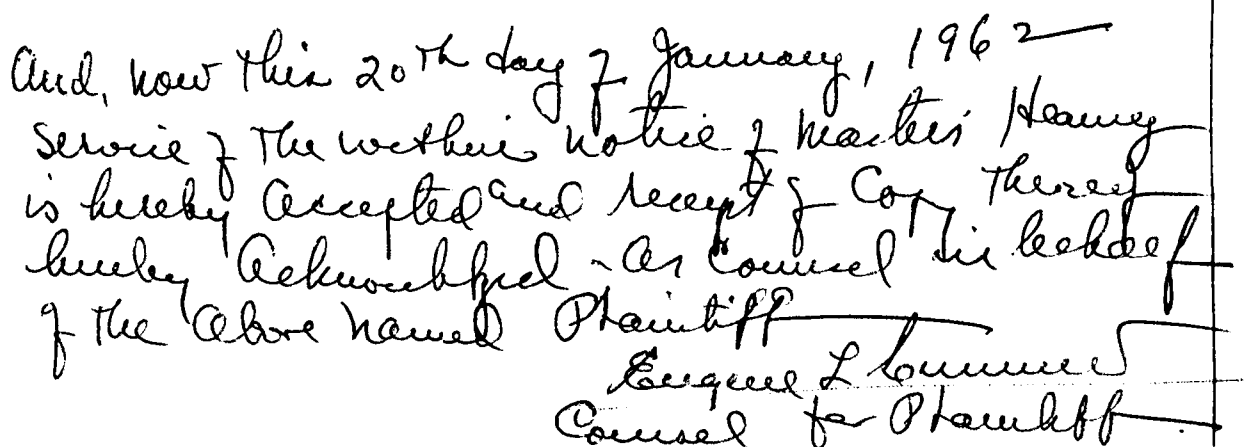 And, now this 20th day of January, 1962
service of the within notice of Masters Hearing
is hereby accepted and receipt of Copy thereof
hereby Acknowledged - as Counsel in behalf
of the Above named Plaintiff
Eugene L
Counsel for Plaintiff